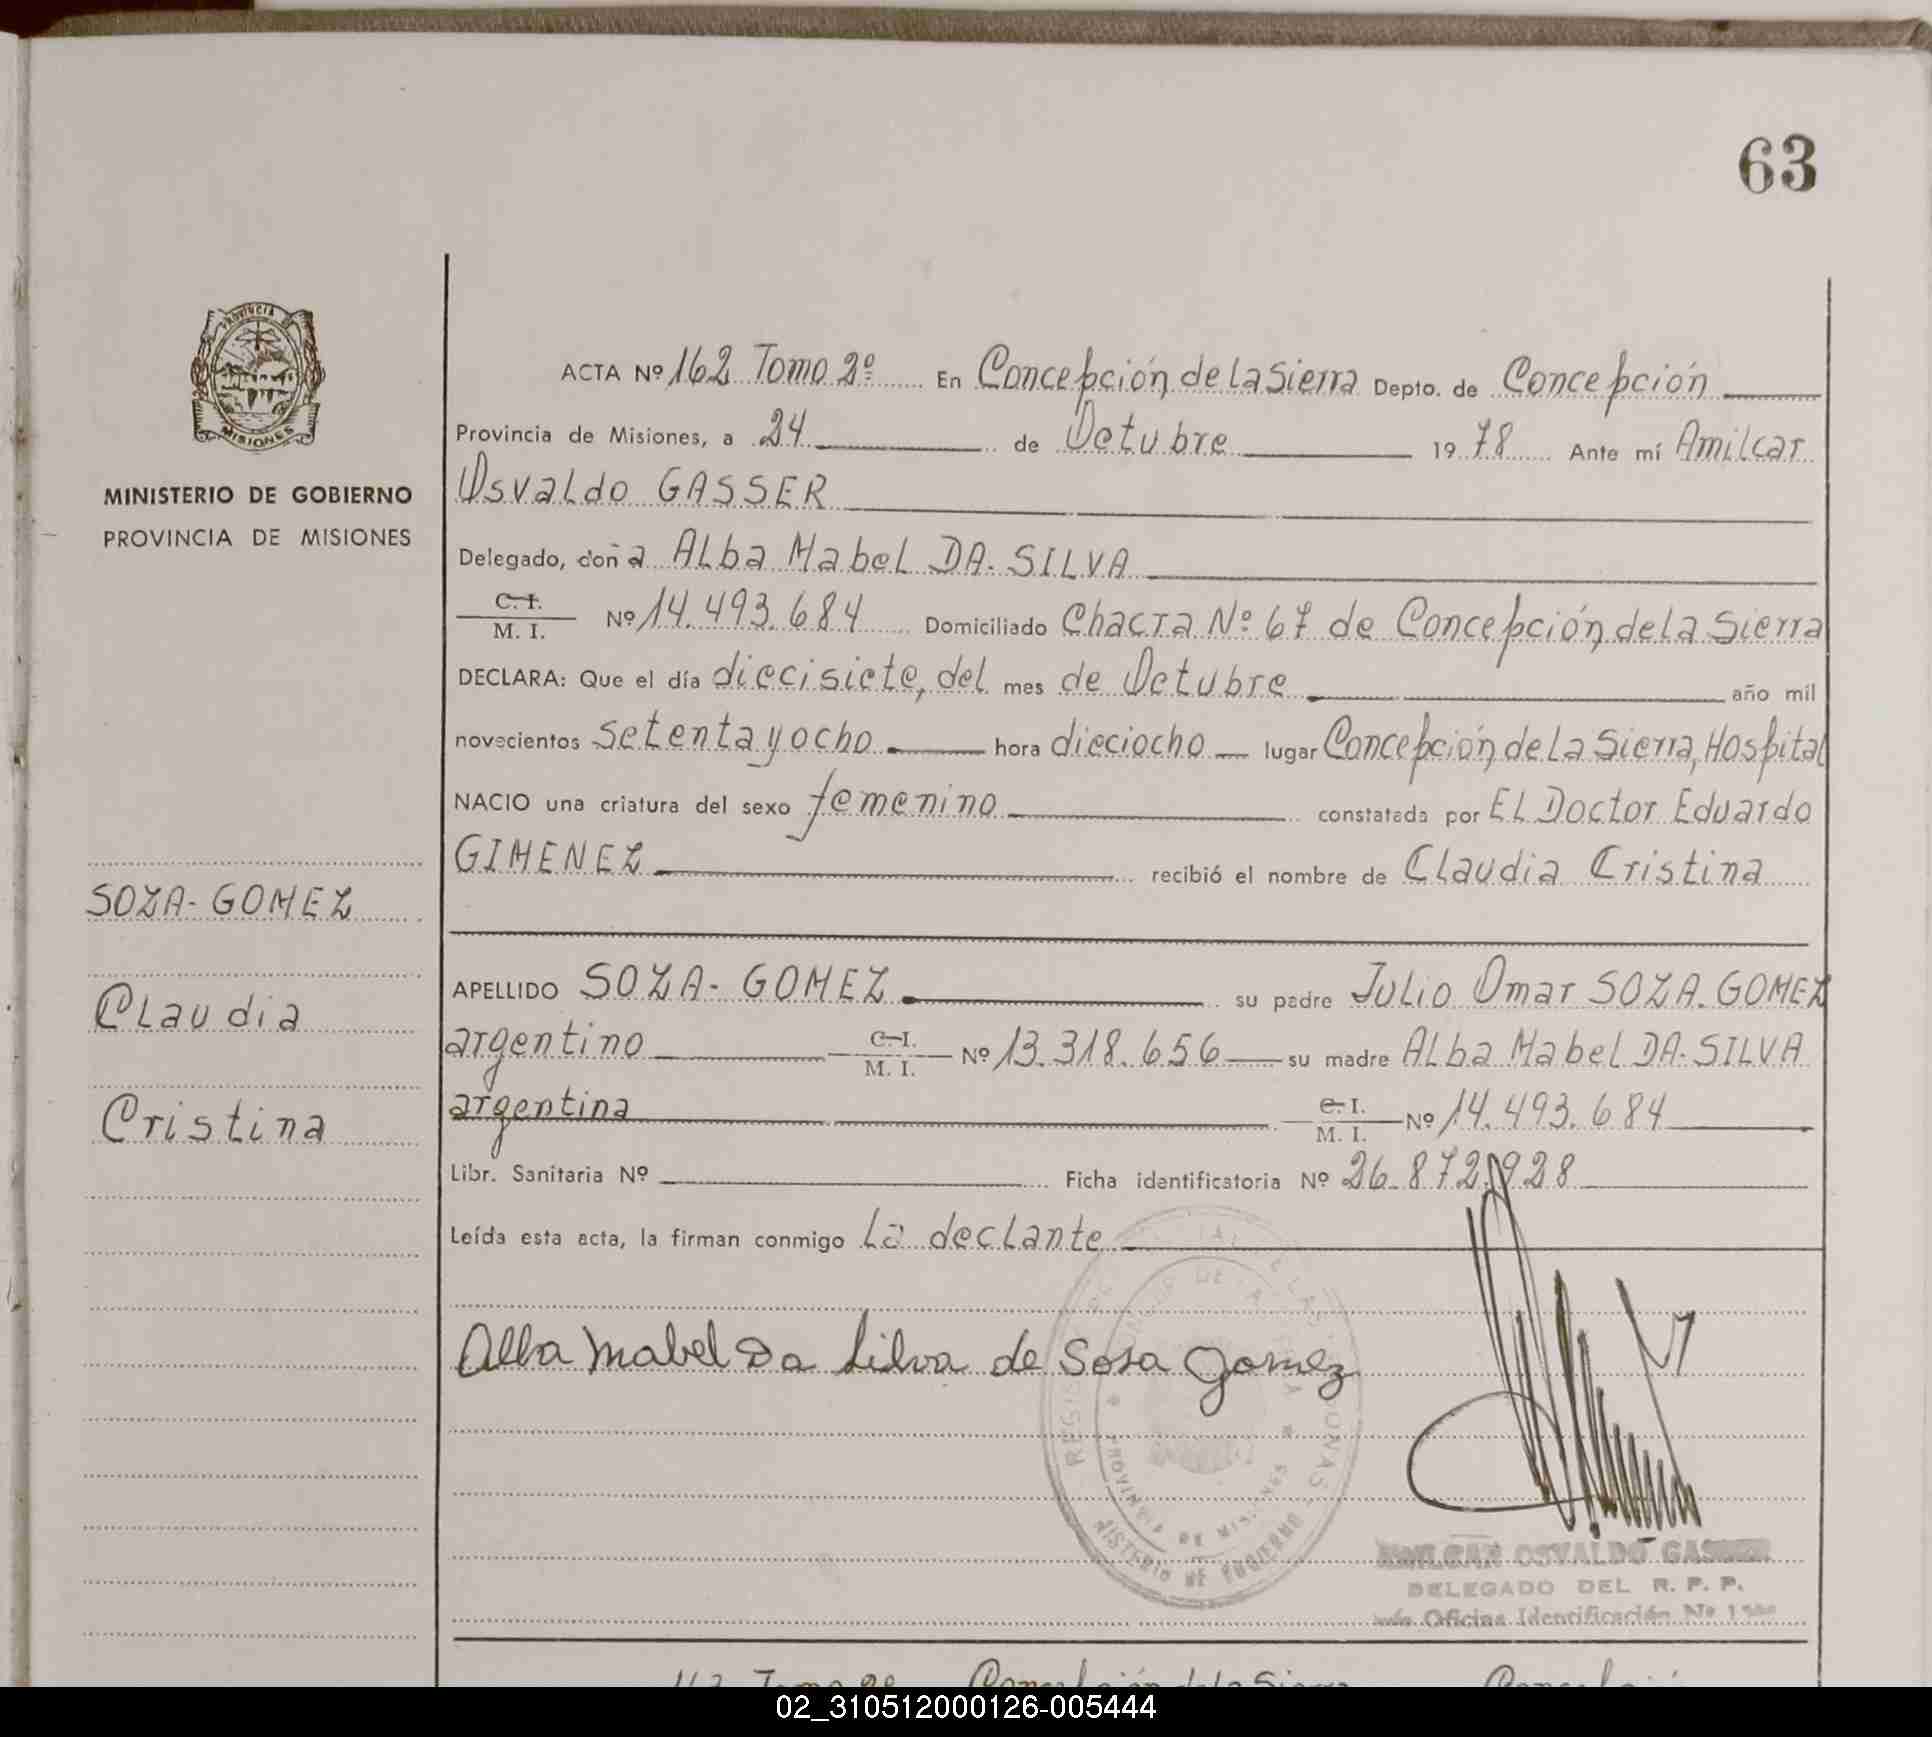 63
PROVINCIA DE
MISIONES
MINISTERIO DE GOBIERNO
PROVINCIA DE MISIONES
SOZA-GOMEZ
Claudia
Cristina
ACTA Nº 162 Tomo 2º En Concepción de la Sierra Depto. de Concepción
Provincia de Misiones, a 24 de Octubre 1978 Ante mí Amilcar
Osvaldo GASSER
Delegado, doña Alba Mabel DA-SILVA
C. I.
M. I. Nº 14.493.684 Domiciliado Chacra Nº 67 de Concepción de la Sierra
DECLARA: Que el día diecisiete, del mes de Octubre año mil
novecientos setenta y ocho hora dieciocho lugar Concepción de la Sierra, Hospital
NACIO una criatura del sexo femenino constatada por El Doctor Eduardo
GIMENEZ recibió el nombre de Claudia Cristina
APELLIDO SOZA-GOMEZ su padre Julio Omar SOZA-GOMEZ
argentino C. I. M. I. Nº 13.318.656 su madre Alba Mabel DA-SILVA
argentina C. I. M. I. Nº 14.493.684
Libr. Sanitaria Nº Ficha identificatoria Nº 26.872.928
Leída esta acta, la firman conmigo la declante
Alba Mabel Da Silva de Sosa Gomez
PROVINCIA DE MISIONES
AMILCAR OSVALDO GASSER
DELEGADO DEL R. P. P.
Oficina Identificación Nº
Tomo 2º Concepción de la Sierra
02_310512000126-005444